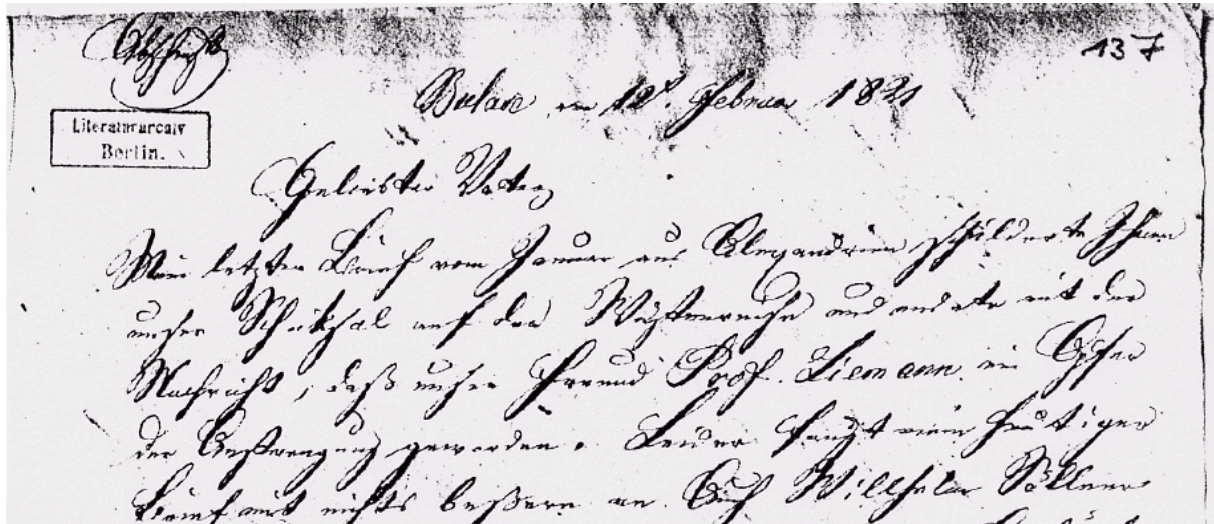 Abschrift
137
Bulac den 12t. Februar 1821
Literaturarchiv
Berlin.
Geliebter Vater
Mein letzter Brief vom Januar aus Alexandrien schilderte Ihnen
unser Schicksal auf der Wüstenreise und endete mit der
Nachricht, daß unser Freund Prof. Liemann ein Opfer
der Anstrengung geworden. Leider fängt mein heutiger
Brief mit nichts beßerm an. Auch Willhelm Söllner